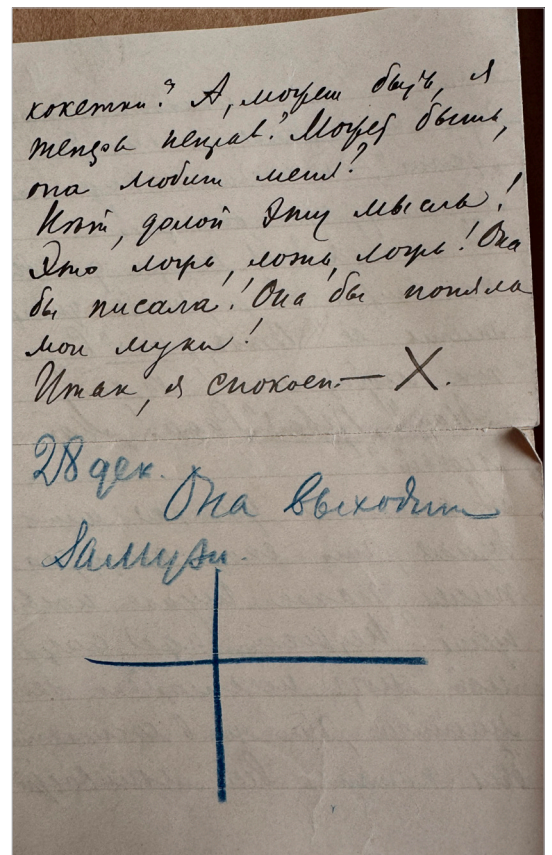 кокетки? А, может быть, я
теперь неправ? Может быть,
она любит меня?
Нѣт, долой эту мысль!
Это ложь, ложь, ложь! Она
бы писала! Она бы поняла
мои муки!
Итак, я спокоен — X.
28 дек.
Она выходит
замуж.